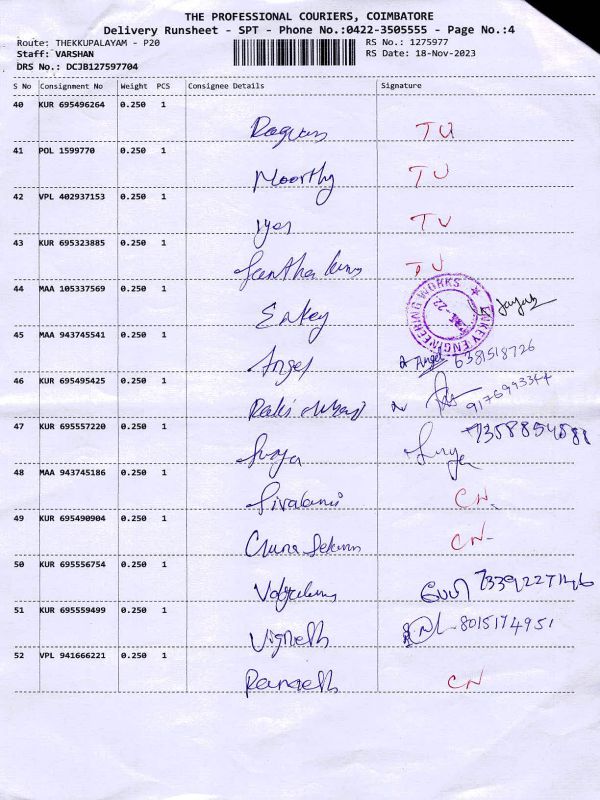 THE PROFESSIONAL COURIERS, COIMBATORE
Delivery Runsheet - SPT - Phone No.:0422-3505555 - Page No.:4
Route: THEKKUPALAYAM - P20 RS No.: 1275977
Staff: VARSHAN RS Date: 18-Nov-2023
DRS No.: DCJB127597704
S No Consignment No Weight PCS Consignee Details Signature
40 KUR 695496264 0.250 1
TU
41 POL 1599770 0.250 1
Moorthy TU
42 VPL 402937153 0.250 1
Iyer TU
43 KUR 695323885 0.250 1
TU
44 MAA 105337569 0.250 1
Enkey ENKEY ENGINEERING WORKS
45 MAA 943745541 0.250 1
Angel Angel 6381518726
46 KUR 695495425 0.250 1
9176993344
47 KUR 695557220 0.250 1
Surya Surya 7358854581
48 MAA 943745186 0.250 1
CN
49 KUR 695490904 0.250 1
CN
50 KUR 695556754 0.250 1
51 KUR 695559499 0.250 1
Vignesh 8015174951
52 VPL 941666221 0.250 1
CN